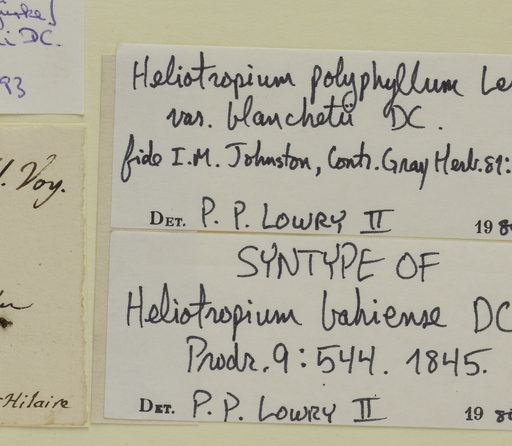 i DC.
93
Voy.
Hilaire
Heliotropium polyphyllum Le
var. blanchetii DC.
fide I.M. Johnston, Contr. Gray Herb. 81:
DET. P. P. LOWRY II 198
SYNTYPE OF
Heliotropium bahiense DC
Prodr. 9: 544. 1845.
DET. P. P. LOWRY II 198